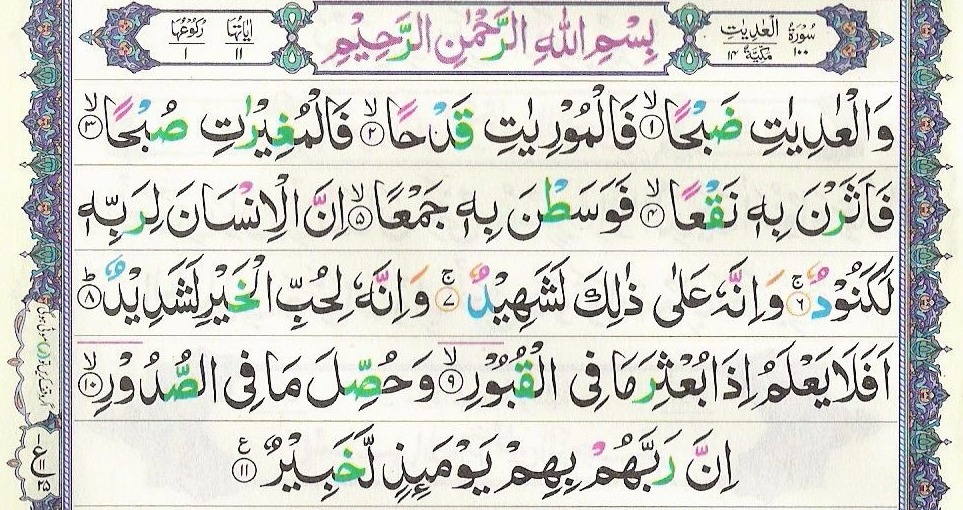 سُورَةُ الْعٰدِيٰتِ مَكِّيَّةٌ ١٠٠ ١٤
بِسْمِ اللهِ الرَّحْمٰنِ الرَّحِيْمِ
اٰيَاتُهَا ١١ رُكُوْعُهَا ١
وَالْعٰدِيٰتِ ضَبْحًا ۙ﴿١﴾ فَالْمُوْرِيٰتِ قَدْحًا ۙ﴿٢﴾ فَالْمُغِيْرٰتِ صُبْحًا ۙ﴿٣﴾
فَاَثَرْنَ بِهٖ نَقْعًا ۙ﴿٤﴾ فَوَسَطْنَ بِهٖ جَمْعًا ۙ﴿٥﴾ اِنَّ الْاِنْسَانَ لِرَبِّهٖ
لَكَنُوْدٌ ۚ﴿٦﴾ وَاِنَّهٗ عَلٰى ذٰلِكَ لَشَهِيْدٌ ۚ﴿٧﴾ وَاِنَّهٗ لِحُبِّ الْخَيْرِ لَشَدِيْدٌ ؕ﴿٨﴾
اَفَلَا يَعْلَمُ اِذَا بُعْثِرَ مَا فِى الْقُبُوْرِ ۙ﴿٩﴾ وَحُصِّلَ مَا فِى الصُّدُوْرِ ۙ﴿١٠﴾
اِنَّ رَبَّهُمْ بِهِمْ يَوْمَئِذٍ لَّخَبِيْرٌ ﴿١١﴾ ع